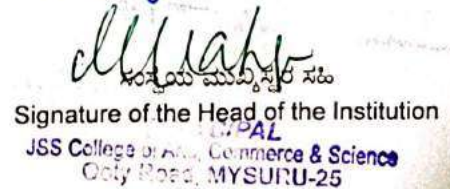 ಸಂಸ್ಥೆಯ ಮುಖ್ಯಸ್ಥರ ಸಹಿ
Signature of the Head of the Institution
JSS College of Commerce & Science
Ooty Road, MYSURU-25